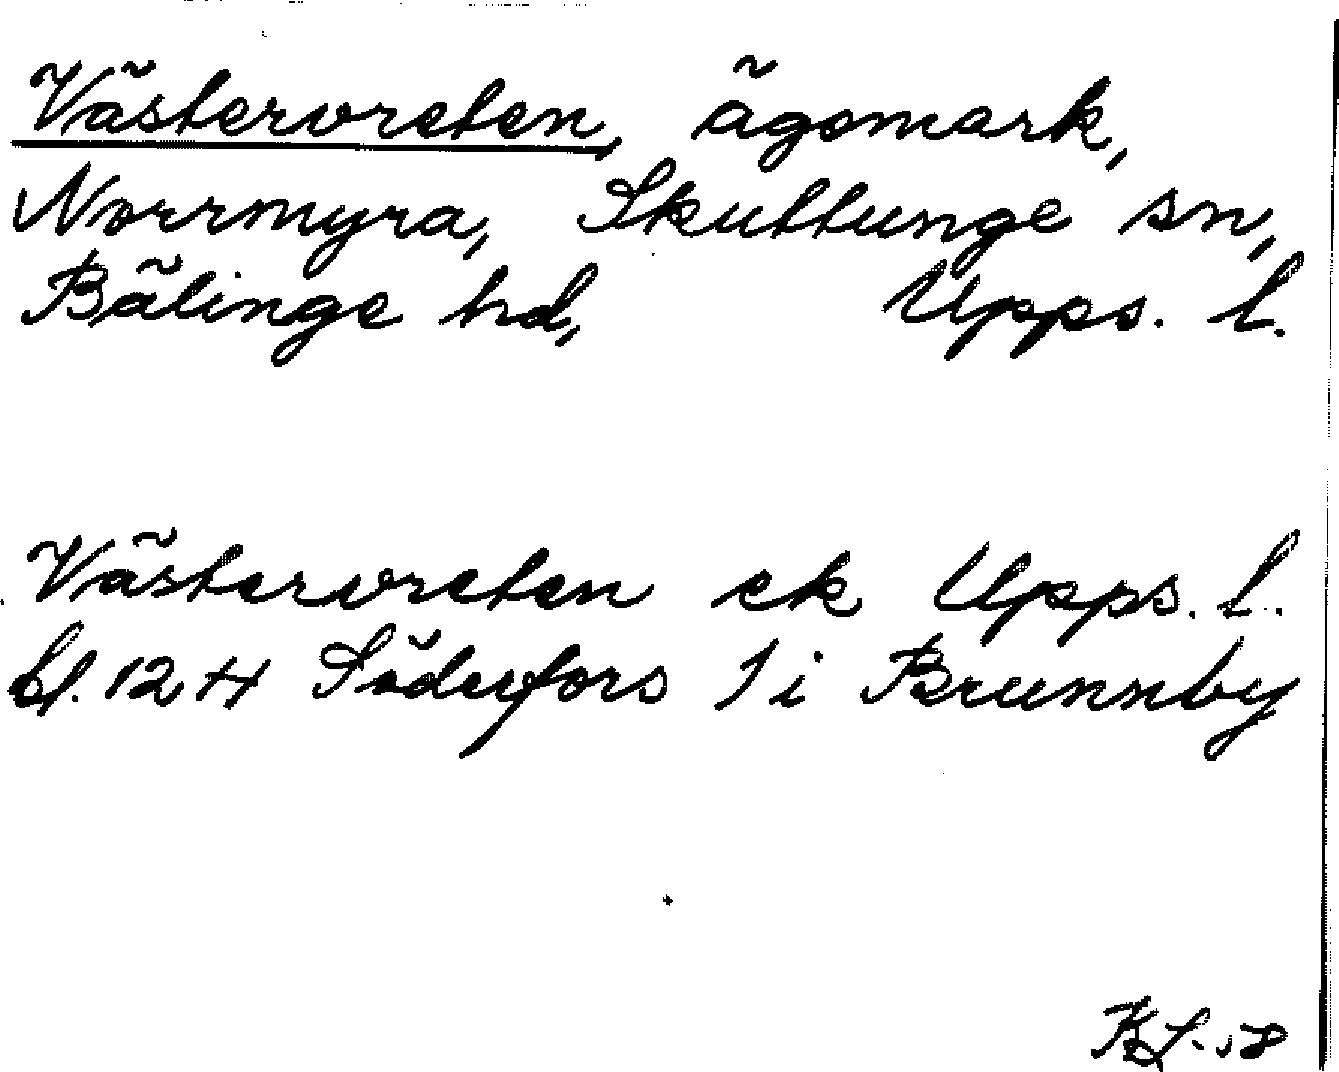 Västervreten, ägomark,
Norrmyra, Skuttunge sn,
Bälinge hd, Upps. l.
Västervreten ek Upps. l.
bl. 12 H Söderfors I i Brunnby